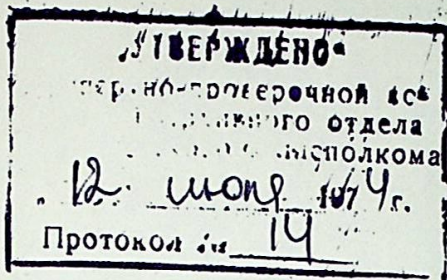 „УТВЕРЖДЕНО“
но-проверочной
отдела
исполкома
„12“ июня 1974г.
Протокол № 14